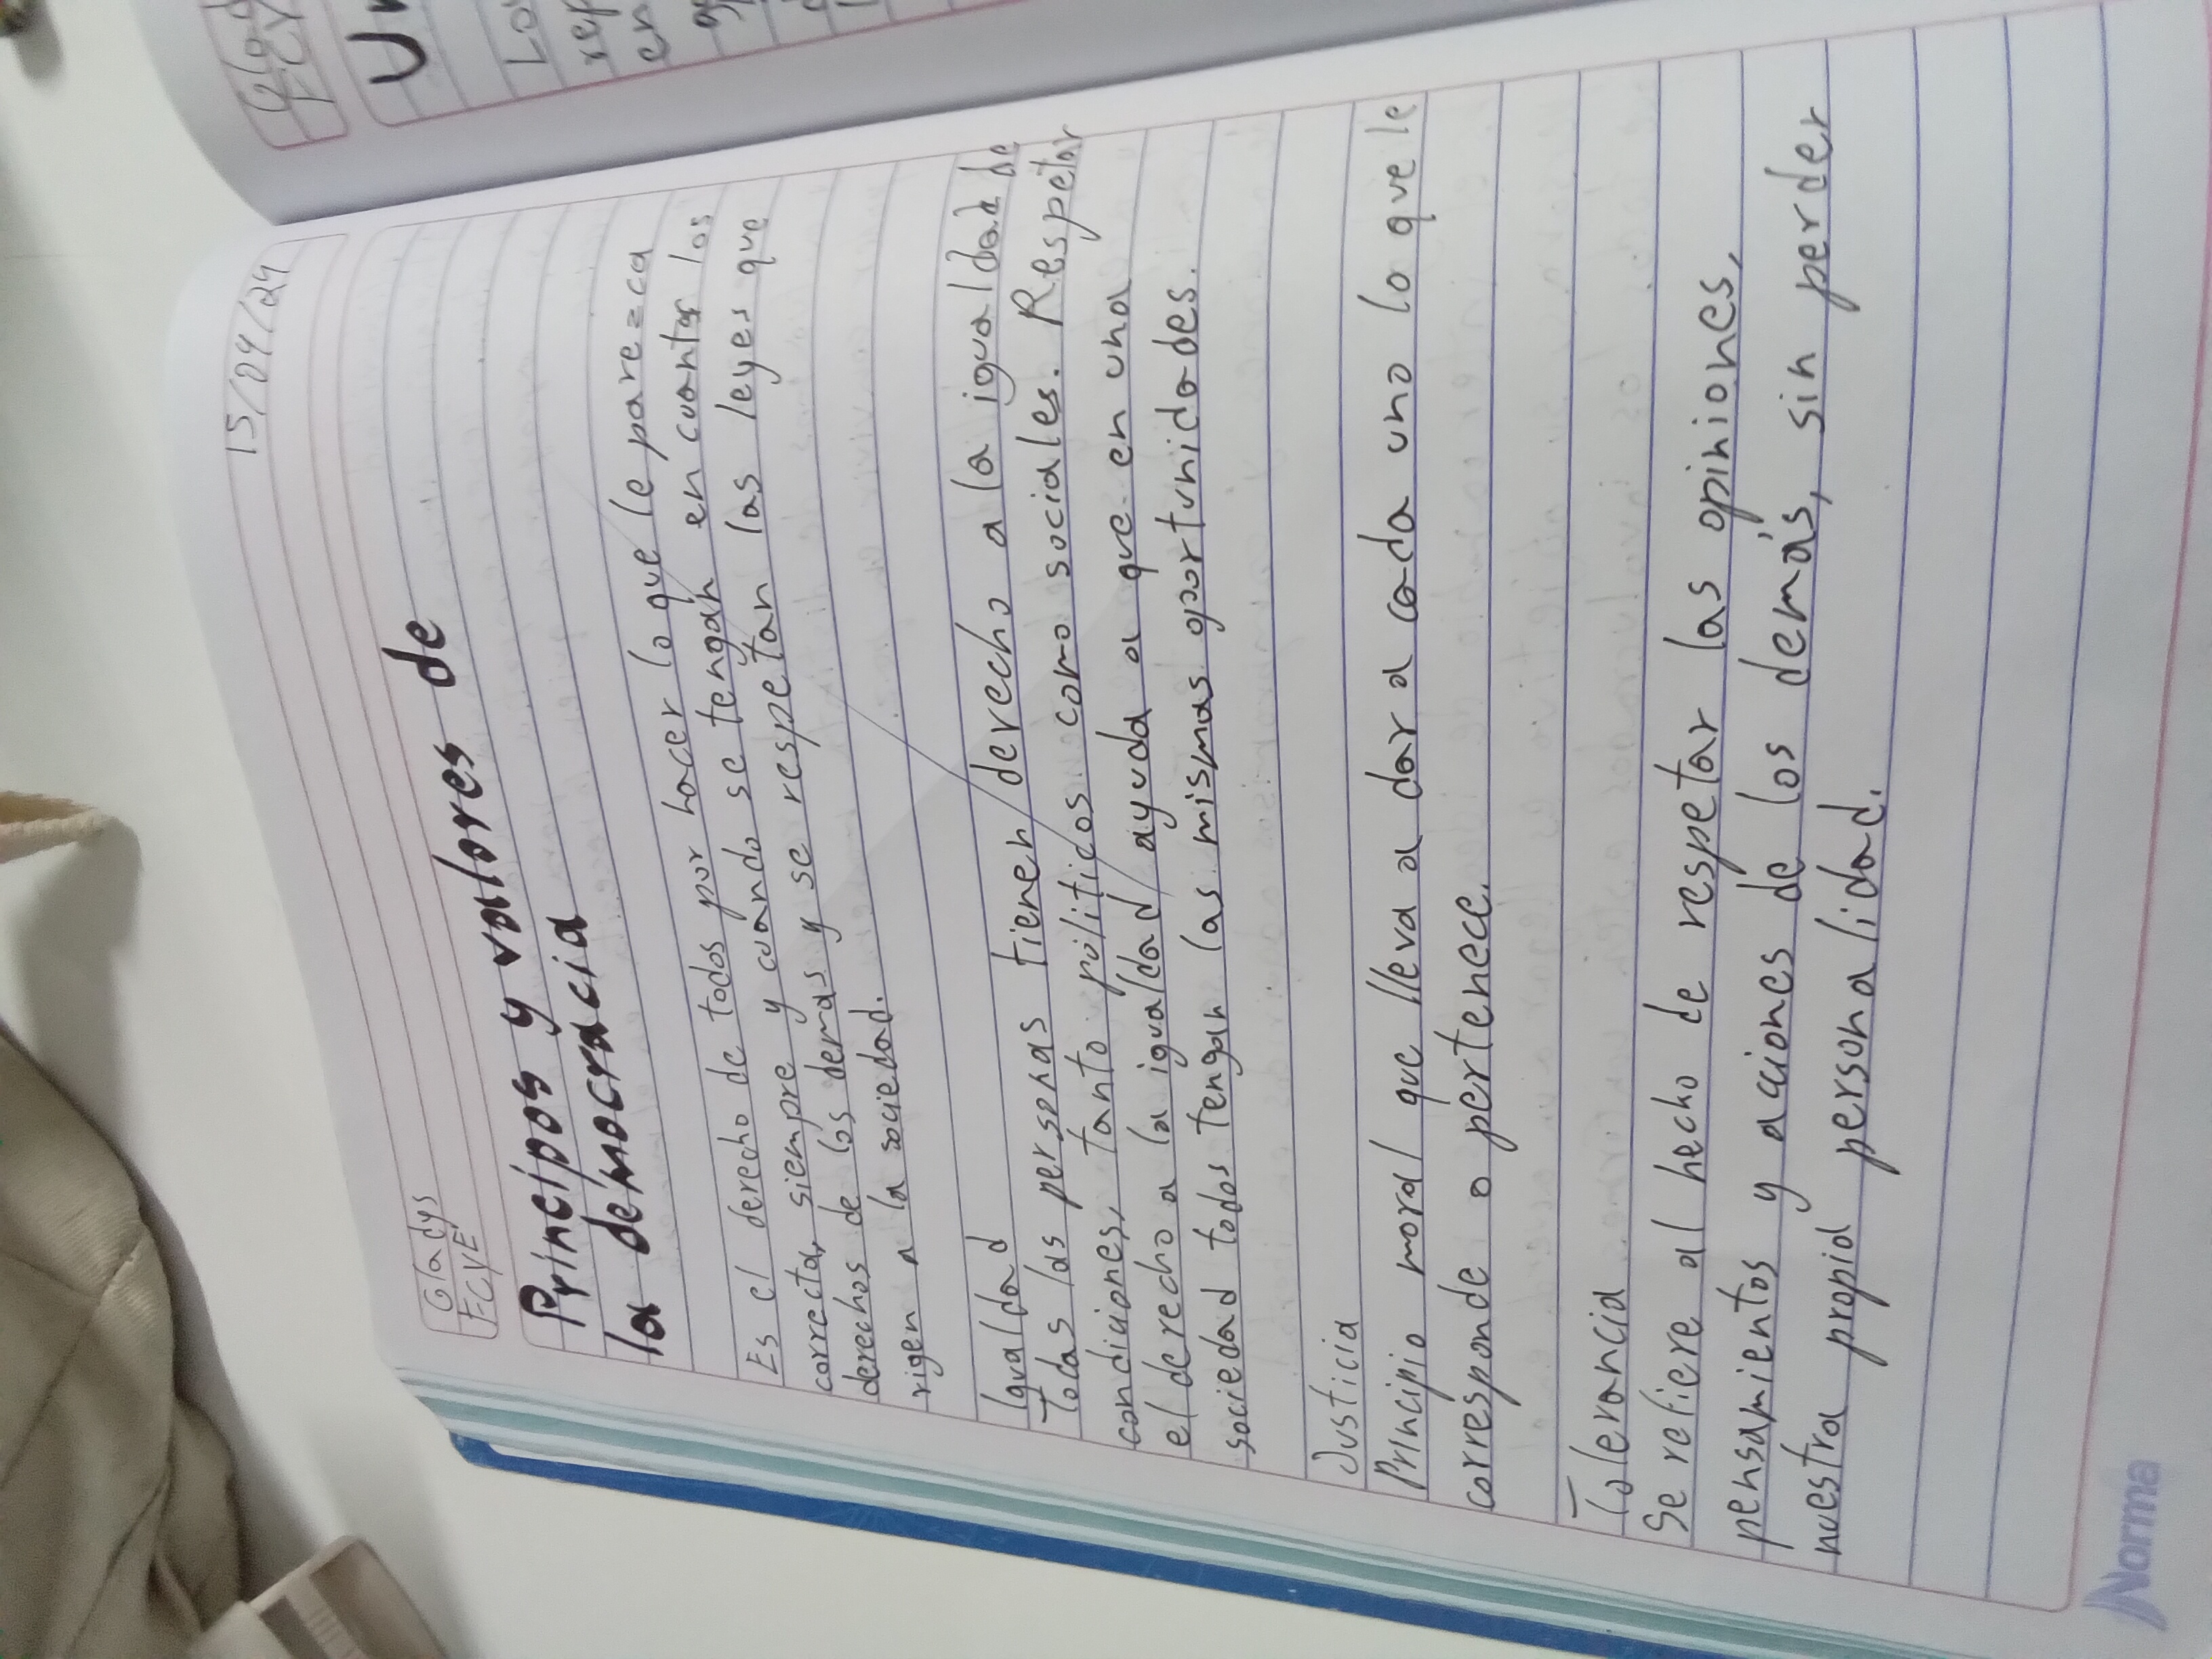 15/04/24
Gladys
FCYE
Princípos y valores de
la démocracia
Es el derecho de todos por hacer lo que le parezca
correcta, siempre y cuando se tengan en cuanta los
derechos de los demas y se respetan las leyes que
rigen a la sociedad.
Igualdad
Todas las personas tienen derecho a la igualdad de
condiciones, tanto políticos como sociales. Respetar
el derecho a la igualdad ayuda a que en una
sociedad todos tengan las mismas oportunidades.
Justicia
Principio moral que lleva a dar a cada uno lo que le
corresponde o pertenece.
Tolerancia
Se refiere al hecho de respetar las opiniones,
pensamientos y acciones de los demás, sin perder
nuestra propia personalidad.
Norma